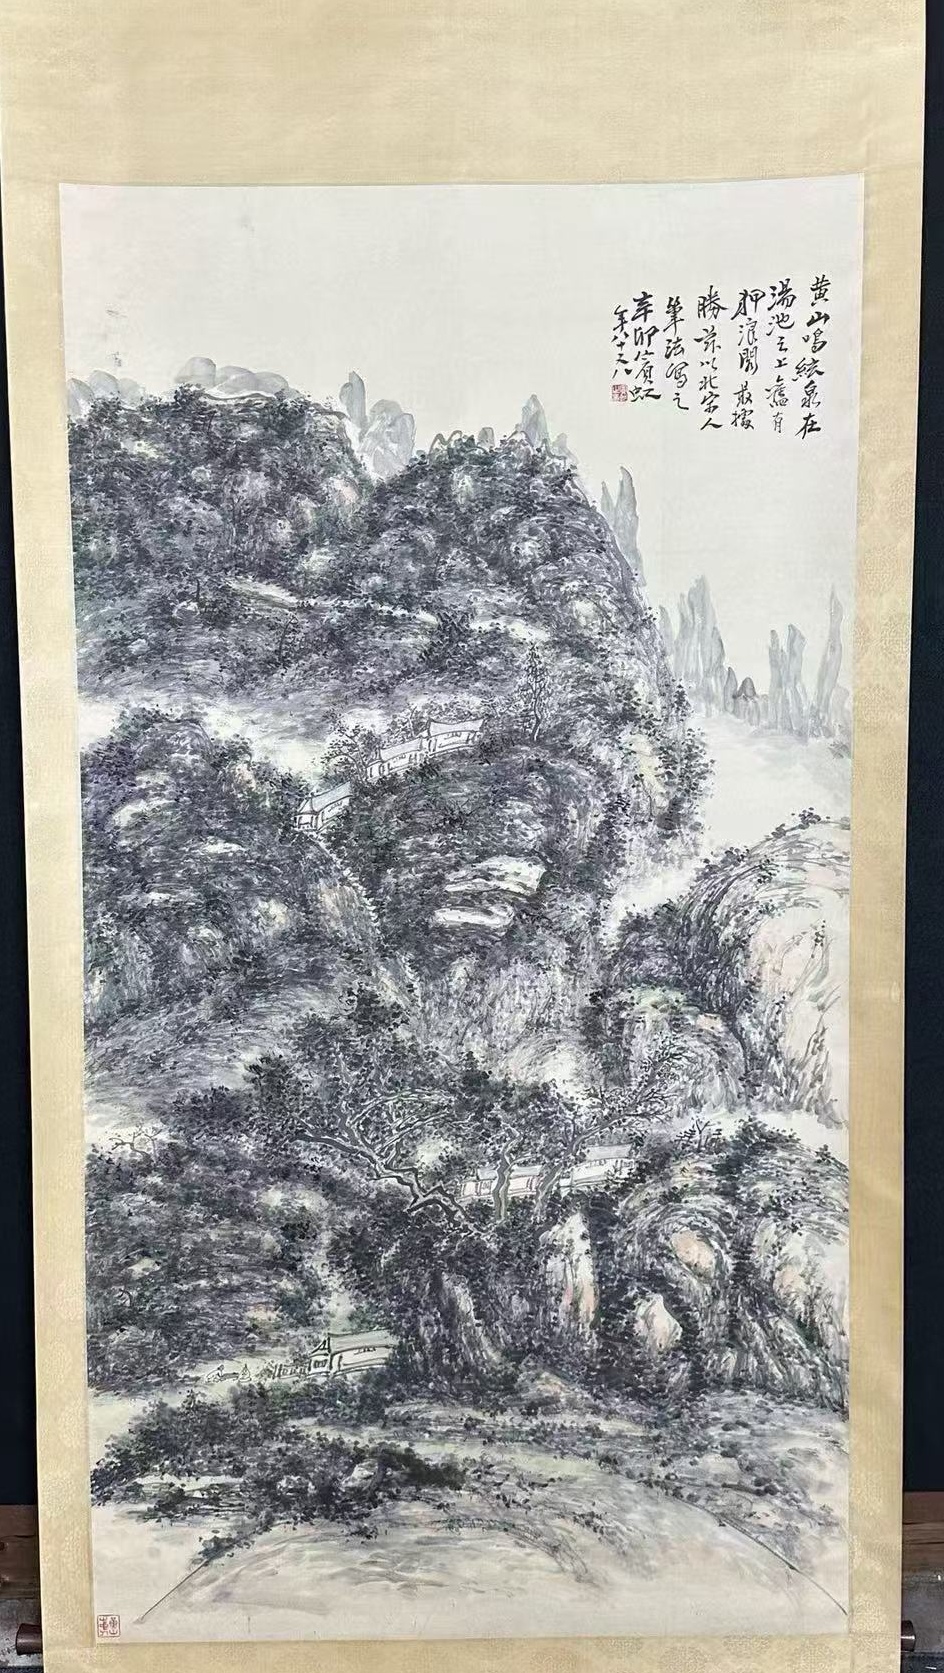 黄山鳴絃泉在
湯池之上舊有
狎浪閣最擅
勝茲以北宋人
筆法寫之
辛卯賓虹
年八十又八